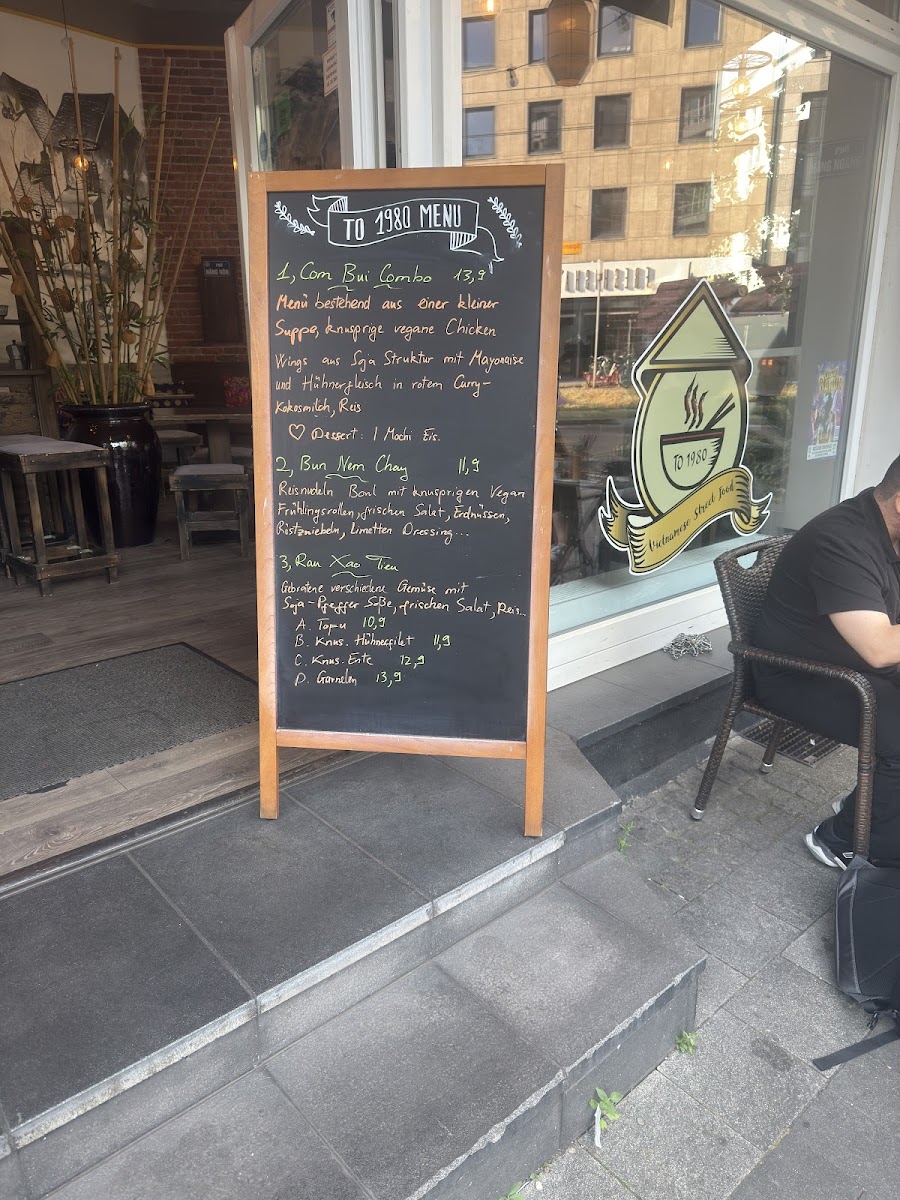 TO 1980 MENU
1, Com Bui Combo 13,9
Menü bestehend aus einer kleiner
Suppe, knusprige vegane Chicken
Wings aus Soja Struktur mit Mayonaise
und Hühnerfleisch in rotem Curry-
Kokosmilch, Reis
Dessert: 1 Mochi Eis.
2, Bun Nem Chay 11,9
Reisnudeln Bowl mit knusprigen Vegan
Frühlingsrollen, frischen Salat, Erdnüssen,
Röstzwiebeln, Limetten Dressing...
3, Rau Xao Tieu
Gebratene verschiedene Gemüse mit
Soja-Pfeffer Soße, frischen Salat, Reis...
A. Tofu 10,9
B. Knus. Hühnerfilet 11,9
C. Knus. Ente 12,9
D. Garnelen 13,9
TO 1980
Vietnamese Street Food
PHỐ
HÀNG NÓN